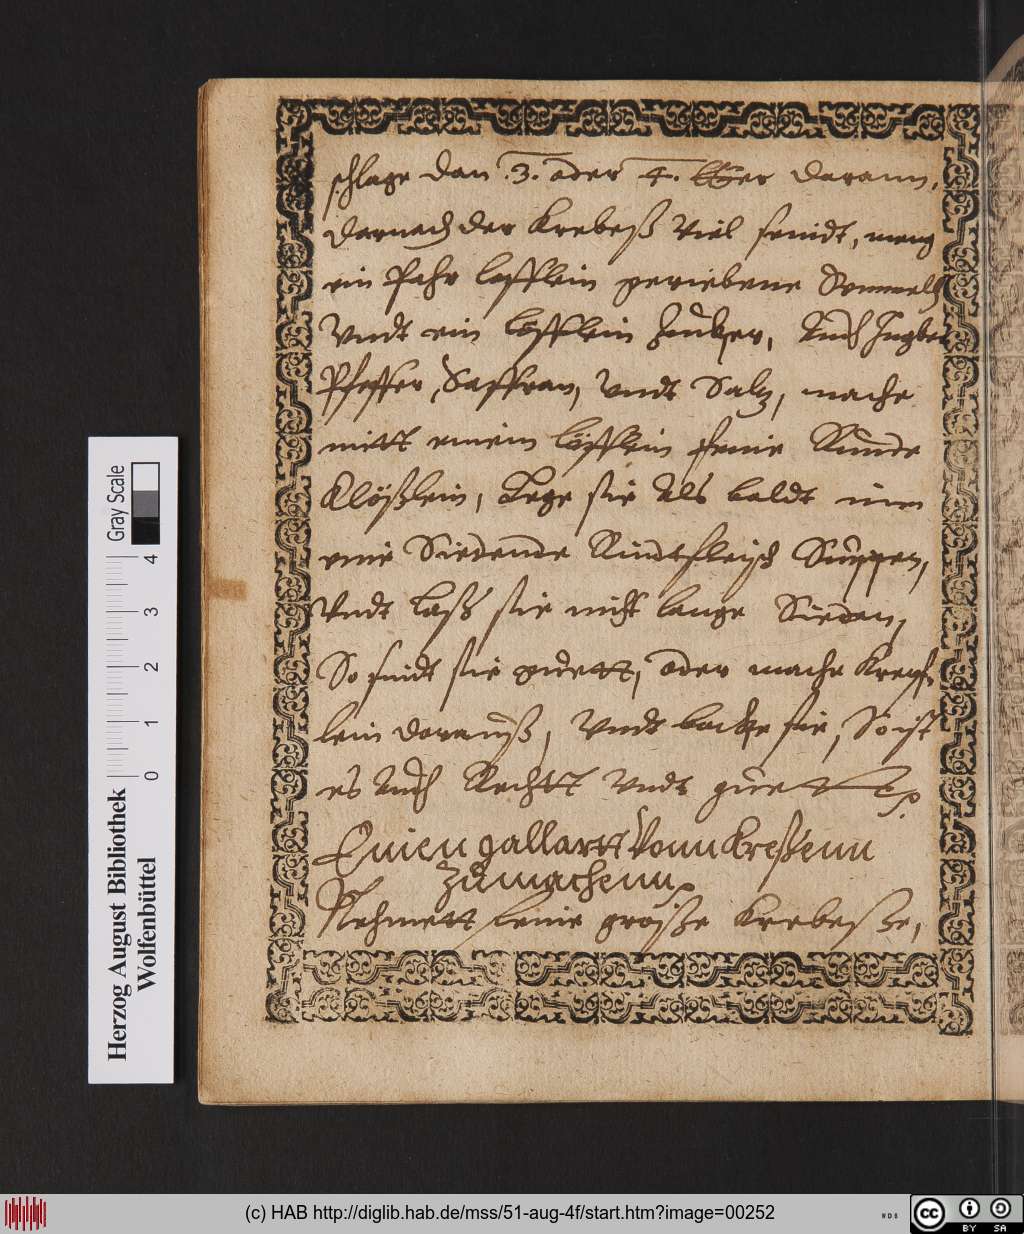 schlage dan .3. oder 4. Eyer darann,
darnach der Krebeß viel seindt, meng
ein Pahr lösslein geriebene Semmelß
Vndt ein löfflein Zucker, Auch Jngber
Pfeffer, Saffran, Vndt Saltz, mache
mitt einem löfflein feine Runde
Klößlein, Lege sie Als baldt inn
eine Siedende Rindtfleisch Suppen,
Vndt laß sie nicht lange Sieden,
So seindt sie guett, oder mache Krepf-
lein darauß, Vndt backe sie, So ist
es Auch Rechtt Vndt guett.
Einen gallartt Vonn Kreßenn
Zu machenn
Nehmett feine große Krebeße,
Gray Scale
4
3
2
1
0
Herzog August Bibliothek
Wolfenbüttel
(c) HAB http://diglib.hab.de/mss/51-aug-4f/start.htm?image=00252
WDB
cc BY SA